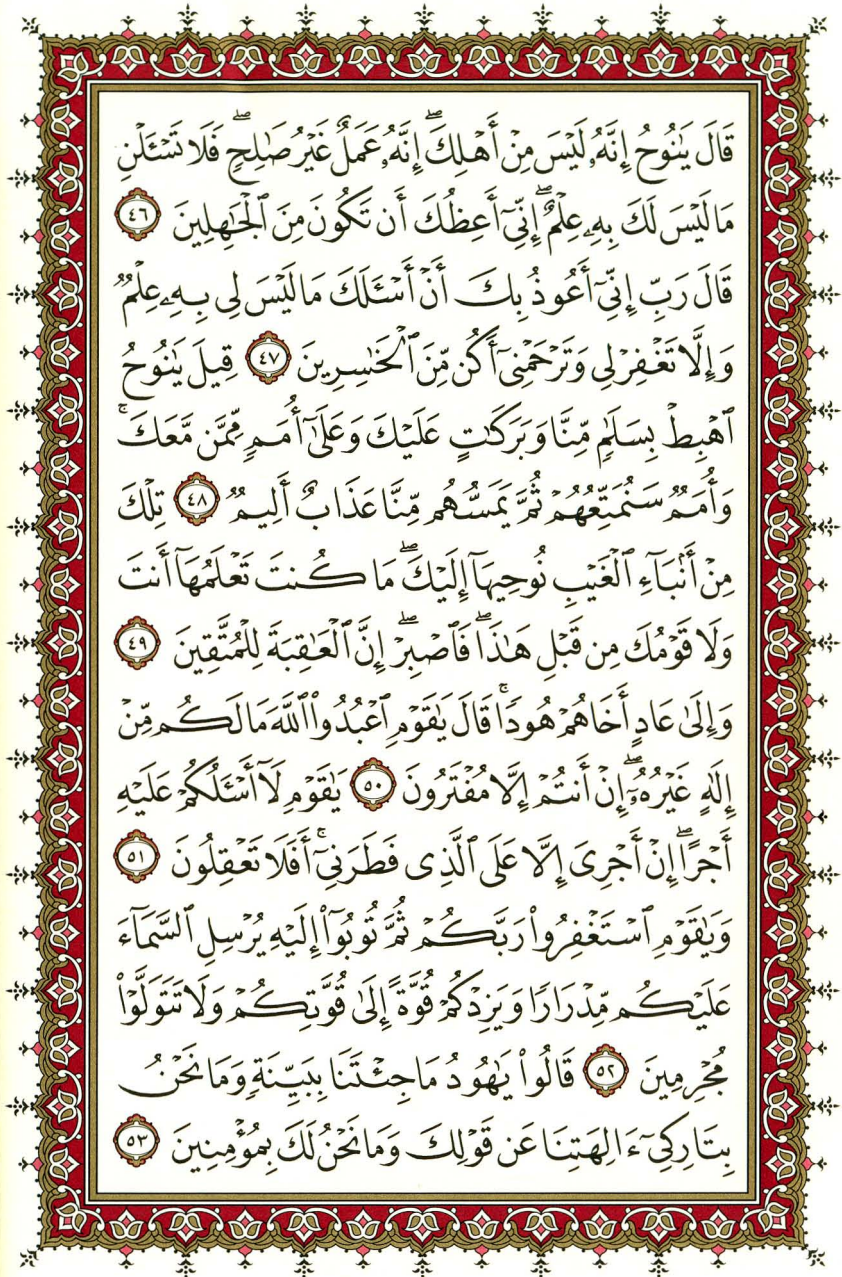 قَالَ يَٰنُوحُ إِنَّهُۥ لَيْسَ مِنْ أَهْلِكَ ۖ إِنَّهُۥ عَمَلٌ غَيْرُ صَٰلِحٍ ۖ فَلَا تَسْـَٔلْنِ
مَا لَيْسَ لَكَ بِهِۦ عِلْمٌ ۖ إِنِّىٓ أَعِظُكَ أَن تَكُونَ مِنَ ٱلْجَٰهِلِينَ ٤٦
قَالَ رَبِّ إِنِّىٓ أَعُوذُ بِكَ أَنْ أَسْـَٔلَكَ مَا لَيْسَ لِى بِهِۦ عِلْمٌ
وَإِلَّا تَغْفِرْ لِى وَتَرْحَمْنِىٓ أَكُن مِّنَ ٱلْخَٰسِرِينَ ٤٧ قِيلَ يَٰنُوحُ
ٱهْبِطْ بِسَلَٰمٍ مِّنَّا وَبَرَكَٰتٍ عَلَيْكَ وَعَلَىٰٓ أُمَمٍ مِّمَّن مَّعَكَ ۚ
وَأُمَمٌ سَنُمَتِّعُهُمْ ثُمَّ يَمَسُّهُم مِّنَّا عَذَابٌ أَلِيمٌ ٤٨ تِلْكَ
مِنْ أَنۢبَآءِ ٱلْغَيْبِ نُوحِيهَآ إِلَيْكَ ۖ مَا كُنتَ تَعْلَمُهَآ أَنتَ
وَلَا قَوْمُكَ مِن قَبْلِ هَٰذَا ۖ فَٱصْبِرْ ۖ إِنَّ ٱلْعَٰقِبَةَ لِلْمُتَّقِينَ ٤٩
وَإِلَىٰ عَادٍ أَخَاهُمْ هُودًا ۚ قَالَ يَٰقَوْمِ ٱعْبُدُوا۟ ٱللَّهَ مَا لَكُم مِّنْ
إِلَٰهٍ غَيْرُهُۥٓ ۖ إِنْ أَنتُمْ إِلَّا مُفْتَرُونَ ٥٠ يَٰقَوْمِ لَآ أَسْـَٔلُكُمْ عَلَيْهِ
أَجْرًا ۖ إِنْ أَجْرِىَ إِلَّا عَلَى ٱلَّذِى فَطَرَنِىٓ ۚ أَفَلَا تَعْقِلُونَ ٥١
وَيَٰقَوْمِ ٱسْتَغْفِرُوا۟ رَبَّكُمْ ثُمَّ تُوبُوٓا۟ إِلَيْهِ يُرْسِلِ ٱلسَّمَآءَ
عَلَيْكُم مِّدْرَارًا وَيَزِدْكُمْ قُوَّةً إِلَىٰ قُوَّتِكُمْ وَلَا تَتَوَلَّوْا۟
مُجْرِمِينَ ٥٢ قَالُوا۟ يَٰهُودُ مَا جِئْتَنَا بِبَيِّنَةٍ وَمَا نَحْنُ
بِتَارِكِىٓ ءَالِهَتِنَا عَن قَوْلِكَ وَمَا نَحْنُ لَكَ بِمُؤْمِنِينَ ٥٣